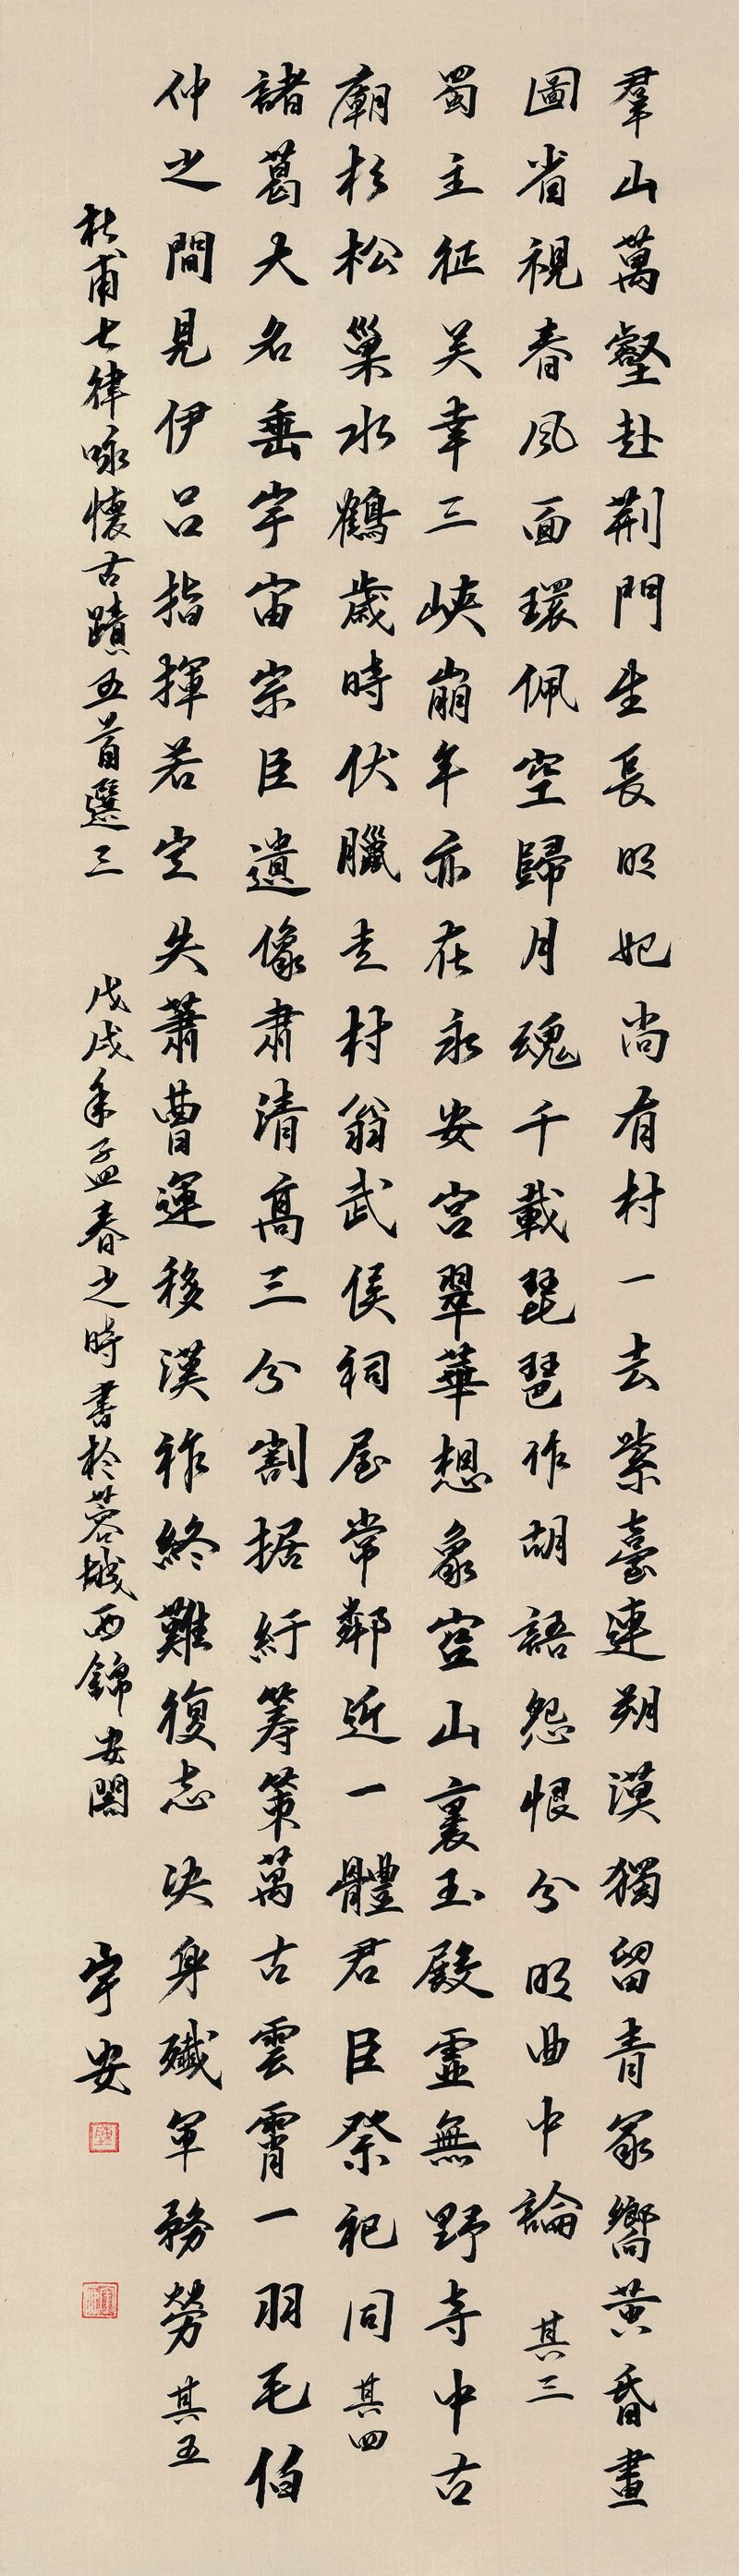 羣山萬壑赴荆門生長明妃尚有村一去紫臺連朔漠獨留青冢嚮黄昏畫
圖省視春風面環佩空歸月魂千載琵琶作胡語怨恨分明曲中論 其三
蜀主征吴幸三峽崩年亦在永安宫翠華想象空山裏玉殿虚無野寺中古
廟杉松巢水鶴歲時伏臘走村翁武侯祠屋常鄰近一體君臣祭祀同 其四
諸葛大名垂宇宙宗臣遺像肅清高三分割据紆籌策萬古雲霄一羽毛伯
仲之間見伊吕指揮若定失蕭曹運移漢祚終難復志決身殲軍務勞 其五
杜甫七律咏懷古蹟五首選三 戊戌年孟春之時書於蓉城西錦安閣 宇安